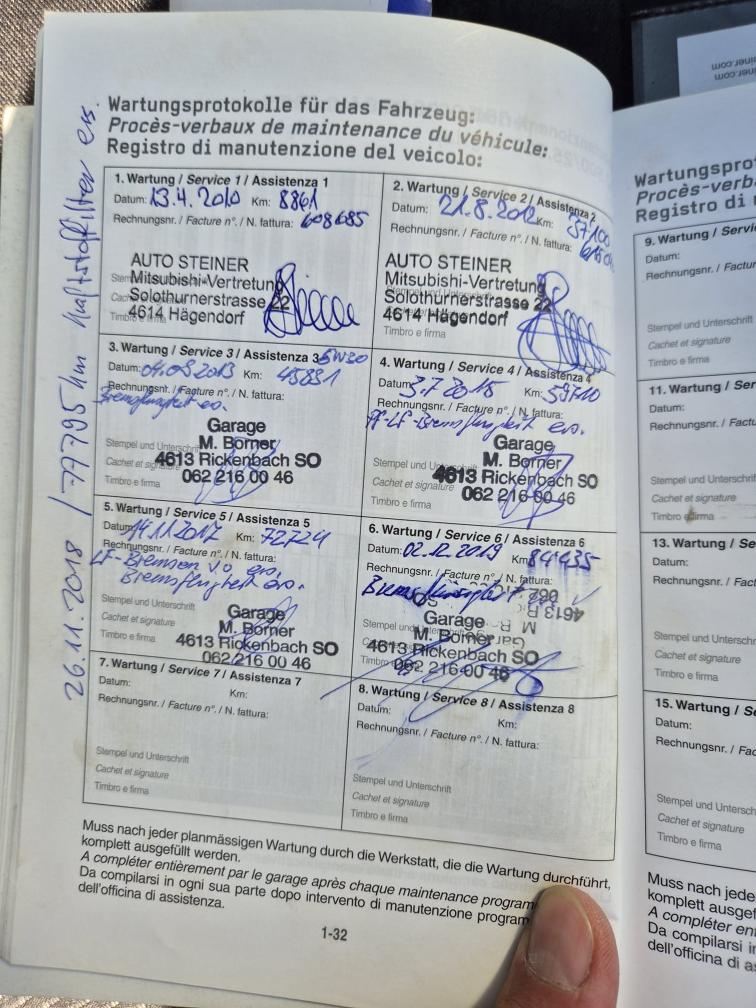 Wartungsprotokolle für das Fahrzeug:
Procès-verbaux de maintenance du véhicule:
Registro di manutenzione del veicolo:
1. Wartung / Service 1 / Assistenza 1
Datum: 13.4.2010 Km: 8861
Rechnungsnr. / Facture n°. / N. fattura: 608685
AUTO STEINER
Mitsubishi-Vertretung
Solothurnerstrasse 22
4614 Hägendorf
Timbro e firma
2. Wartung / Service 2 / Assistenza 2
Datum: 21.8.2012 Km: 37100
Rechnungsnr. / Facture n°. / N. fattura:
AUTO STEINER
Mitsubishi-Vertretung
Solothurnerstrasse 22
4614 Hägendorf
Timbro e firma
3. Wartung / Service 3 / Assistenza 3 5W30
Datum: 04.09.2013 Km: 45831
Rechnungsnr. / Facture n°. / N. fattura:
Bremsflüssigkeit ers.
Garage
M. Borner
4613 Rickenbach SO
062 216 00 46
Stempel und Unterschrift
Cachet et signature
Timbro e firma
4. Wartung / Service 4 / Assistenza 4
Datum: 3.7.2015 Km: 59710
Rechnungsnr. / Facture n°. / N. fattura:
PF-LF-Bremsflüssigkeit ers.
Garage
M. Borner
4613 Rickenbach SO
062 216 00 46
Stempel und Unterschrift
Cachet et signature
Timbro e firma
5. Wartung / Service 5 / Assistenza 5
Datum: 14.11.2017 Km: 72724
Rechnungsnr. / Facture n°. / N. fattura:
LF-Bremsen v.o ers.
Bremsflüssigkeit ers.
Garage
M. Borner
4613 Rickenbach SO
062 216 00 46
Stempel und Unterschrift
Cachet et signature
Timbro e firma
6. Wartung / Service 6 / Assistenza 6
Datum: 02.12.2019 Km: 84435
Rechnungsnr. / Facture n°. / N. fattura:
Bremsflüssigkeit
Garage
M. Borner
4613 Rickenbach SO
062 216 00 46
Cachet et signature
7. Wartung / Service 7 / Assistenza 7
Datum: Km:
Rechnungsnr. / Facture n°. / N. fattura:
Stempel und Unterschrift
Cachet et signature
Timbro e firma
8. Wartung / Service 8 / Assistenza 8
Datum: Km:
Rechnungsnr. / Facture n°. / N. fattura:
Stempel und Unterschrift
Cachet et signature
Timbro e firma
26.11.2018 / 77795 km Kraftstoffilter ers.
Muss nach jeder planmässigen Wartung durch die Werkstatt, die die Wartung durchführt,
komplett ausgefüllt werden.
A compléter entièrement par le garage après chaque maintenance program
Da compilarsi in ogni sua parte dopo intervento di manutenzione program
dell'officina di assistenza.
1-32
Wartungspro
Procès-verba
Registro di
9. Wartung / Servi
Datum:
Rechnungsnr. / Factur
Stempel und Unterschrift
Cachet et signature
Timbro e firma
11. Wartung / Ser
Datum:
Rechnungsnr. / Factu
Stempel und Unterschrift
Cachet et signature
Timbro e firma
13. Wartung / Se
Datum:
Rechnungsnr. / Fact
Stempel und Unterschrift
Cachet et signature
Timbro e firma
15. Wartung / Se
Datum:
Rechnungsnr. / Fac
Stempel und Unterschrift
Cachet et signature
Timbro e firma
Muss nach jede
komplett ausgef
A compléter en
Da compilarsi in
dell'officina di a